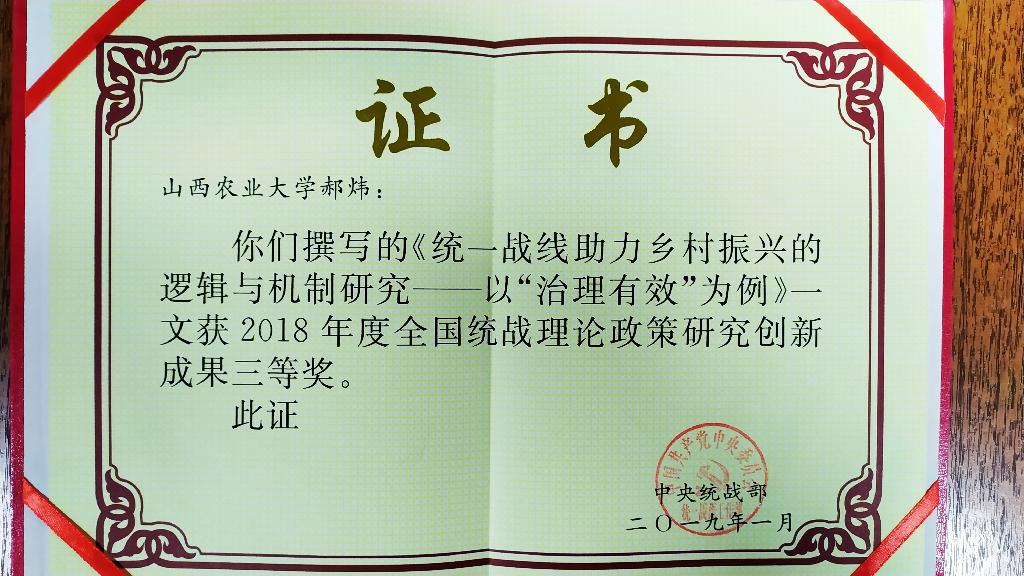 证 书
山西农业大学郝炜：
你们撰写的《统一战线助力乡村振兴的
逻辑与机制研究——以“治理有效”为例》一
文获 2018 年度全国统战理论政策研究创新
成果三等奖。
此证
中国共产党中央委员会
中央统战部
二〇一九年一月